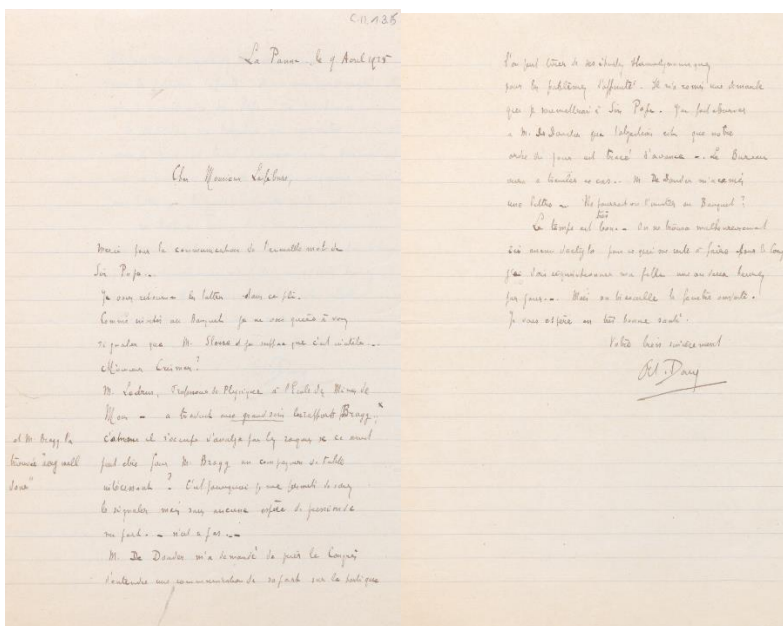 C.D. 135
La Panne, le 9 Avril 1925
Cher Monsieur Lefebure,
Merci pour la communication de l'aimable mot de
Sir Pope.
Je vous retourne les lettres dans ce pli.
Comme invités au Banquet je ne vois guère à vous
signaler que M. et je suppose que c'est inutile.
Monsieur Crismer?
M. Ledrus, Professeur de Physique à l'Ecole des Mines de
Mons - a traduit avec grand soin le rapport Bragg,
et M. Bragg l'a
terminé "very well
done"
d'ailleurs il s'occupe d'analyse par les rayons X ce serait
peut être pour M. Bragg un compagnon de table
intéressant? C'est pourquoi je me permets de vous
le signaler mais sans aucune espèce de pression de
ma part. - n'est ce pas -
M. De Donder m'a demandé de pouvoir le Congrès
d'entendre une communication de sa part sur le
l'on peut tirer de ses études thermodynamiques
pour les problèmes d'affinité. Il m'a remis une demande
que je soumettrai à Sir Pope. J'ai fait observer
à M. De Donder que l'objection est que notre
ordre du jour est tracé d'avance. - Le Bureau
aura à trancher ce cas. - M. De Donder m'a remis
une lettre - Ne pourrait on l'inviter au Banquet?
Le temps est très bon. - On ne trouve malheureusement
ici aucun dactylo pour ce qui me reste à faire pour le Congrès
j'ai dû ma fille une ou deux heures
par jour. - Mais on travaille la fenêtre ouverte.
Je vous espère en très bonne santé.
Votre bien sincèrement
Oct. Dony